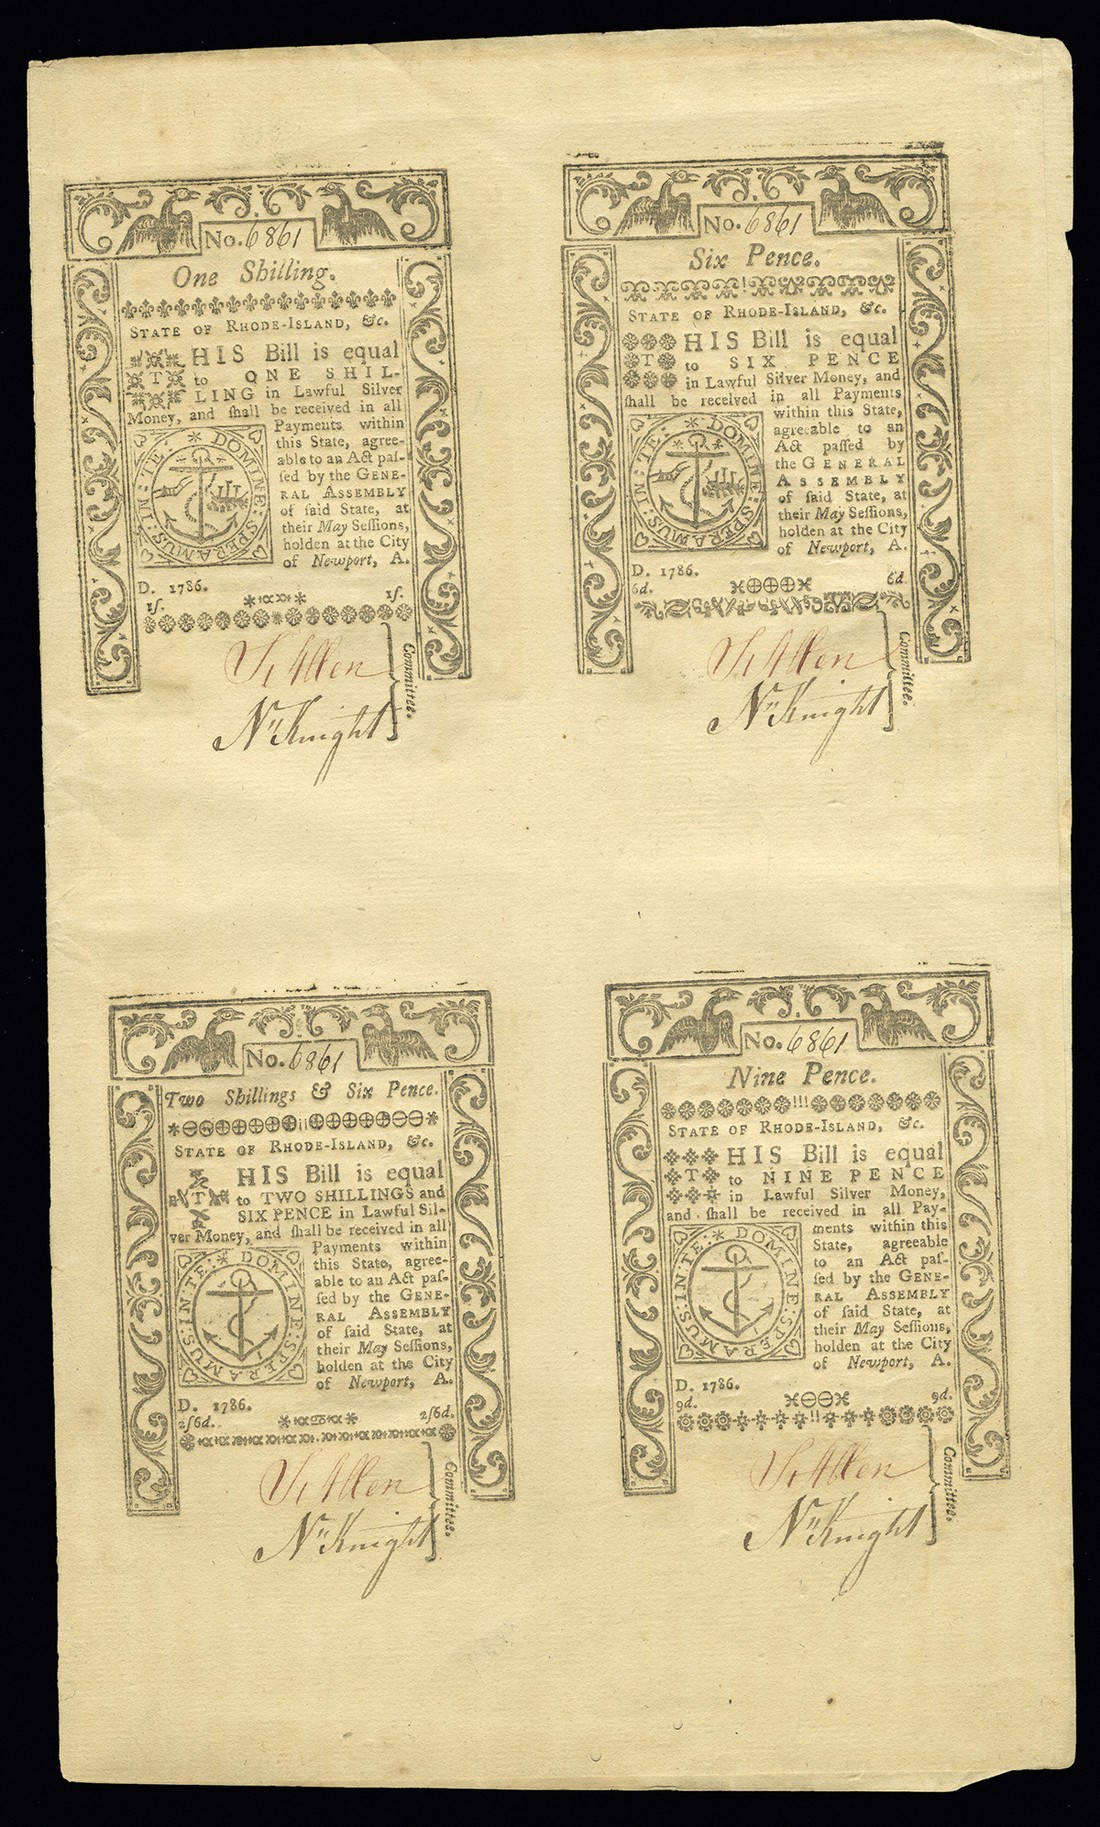 No. 6861
One Shilling.
STATE OF RHODE-ISLAND, &c.
THIS Bill is equal
to ONE SHIL-
LING in Lawful Silver
Money, and ſhall be received in all
Payments within
this State, agree-
able to an Act paſ-
ſed by the GENE-
RAL ASSEMBLY
of ſaid State, at
their May Seſſions,
holden at the City
of Newport, A.
D. 1786.
1ſ. 1ſ.
IN TE DOMINE SPERAMUS
Sı Allen
Nⁿ Knight
Committee.
No. 6861
Six Pence.
STATE OF RHODE-ISLAND, &c.
THIS Bill is equal
to SIX PENCE
in Lawful Silver Money, and
ſhall be received in all Payments
within this State,
agreeable to an
Act paſſed by
the GENERAL
ASSEMBLY
of ſaid State, at
their May Seſſions,
holden at the City
of Newport, A.
D. 1786.
6d. 6d.
IN TE DOMINE SPERAMUS
Sı Allen
Nⁿ Knight
Committee.
No. 6861
Two Shillings & Six Pence.
STATE OF RHODE-ISLAND, &c.
THIS Bill is equal
to TWO SHILLINGS and
SIX PENCE in Lawful Sil-
ver Money, and ſhall be received in all
Payments within
this State, agree-
able to an Act paſ-
ſed by the GENE-
RAL ASSEMBLY
of ſaid State, at
their May Seſſions,
holden at the City
of Newport, A.
D. 1786.
2ſ6d. 2ſ6d.
IN TE DOMINE SPERAMUS
Sı Allen
Nⁿ Knight
Committee.
No. 6861
Nine Pence.
STATE OF RHODE-ISLAND, &c.
THIS Bill is equal
to NINE PENCE
in Lawful Silver Money,
and ſhall be received in all Pay-
ments within this
State, agreeable
to an Act paſ-
ſed by the GENE-
RAL ASSEMBLY
of ſaid State, at
their May Seſſions,
holden at the City
of Newport, A.
D. 1786.
9d. 9d.
IN TE DOMINE SPERAMUS
Sı Allen
Nⁿ Knight
Committee.